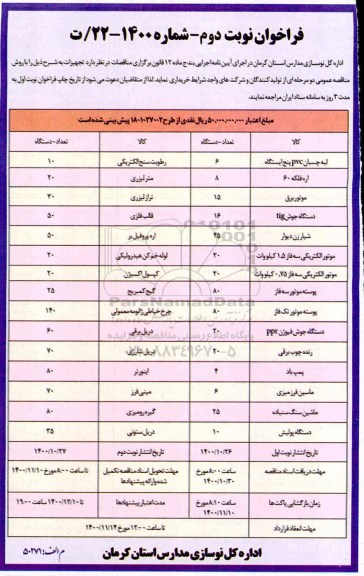 فراخوان نوبت دوم - شماره ۱۴۰۰-۲۲/ت
اداره کل نوسازی مدارس استان کرمان در اجرای آیین نامه اجرایی بند ج ماده ۱۲ قانون برگزاری مناقصات در نظر دارد تجهیزات به شرح ذیل را با روش
مناقصه عمومی دو مرحله ای از تولید کنندگان و شرکت های واجد شرایط خریداری نماید. لذا از متقاضیان دعوت می شود از تاریخ چاپ فراخوان نوبت اول به
مدت ۳ روز به سامانه ستاد ایران مراجعه نمایند.
مبلغ اعتبار ۵۰,۰۰۰,۰۰۰,۰۰۰ ریال نقدی از طرح ۱۸۰۱۰۲۷۰۰۲ پیش بینی شده است
کالا تعداد - دستگاه کالا تعداد - دستگاه
لبه چسبان pvc پنج ایستگاه ۶ رطوبت سنج الکتریکی ۱۰
اره فلکه ۶۰ ۸ متر لیزری ۲۰
موتور برق ۱۵ تراز لیزری ۳۰
دستگاه جوش tig ۱۶ قالب فلزی ۵۰
شیار زن دیوار ۴۵ اره پروفیل بر ۵۰
موتور الکتریکی سه فاز ۱.۵ کیلو وات ۲۰ لوله خم کن هیدرولیکی ۲۰
موتور الکتریکی سه فاز ۰.۷۵ کیلو وات ۲۰ کپسول اکسیژن ۲۰
پوسته موتور سه فاز ۸۰ گیج کمپرسیج ۲۵
پوسته موتور تک فاز ۸۰ چرخ خیاطی ژانومه معمولی ۱۴۰
دستگاه جوش فیوژن ppr ۲۰ دریل برقی ۶۰
رنده چوب برقی ۲۰ دریل شارژی ۷۰
پمپ باد ۴ اینورتر ۸۰
ماسین فرز میزی ۶ مینی فرز ۷۰
ماشین سنگ سنباده ۲۵ گیره رومیزی ۸۰
دستگاه پولیش ۱۰ دریل ستونی ۳۵
تاریخ انتشار نوبت اول ۱۴۰۰/۱۰/۲۶ تاریخ انتشار نوبت دوم ۱۴۰۰/۱۰/۲۷
مهلت دریافت اسناد مناقصه ساعت ۸:۰۰ مورخ ۱۴۰۰/۱۰/۳۰ مهلت تحویل اسناد مناقصه تکمیل شده و ارائه پیشنهادها تا ساعت ۸:۰۰ مورخ ۱۴۰۰/۱۱/۱۰
زمان بازگشایی پاکت ها ساعت ۸:۱۰ مورخ ۱۴۰۰/۱۱/۱۰ مدت اعتبار پیشنهادها تا ۱۴۰۰/۱۲/۱۰ ساعت ۱۹:۰۰
مهلت انعقاد قرارداد تا ساعت ۱۲:۰۰ مورخ ۱۴۰۰/۱۱/۱۴
اداره کل نوسازی مدارس استان کرمان
م الف: ۵۰۲۷۱
ParsNamadData
پایگاه اطلاع رسانی مناقصه و مزایده